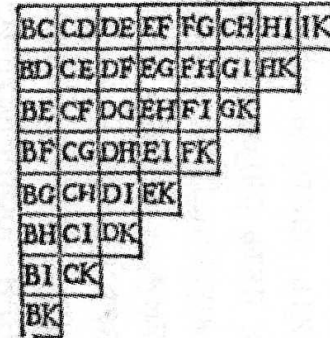 BC CD DE EF FG CH HI IK
BD CE DF EG FH GI HK
BE CF DG EH FI GK
BF CG DH EI FK
BG CH DI EK
BH CI DK
BI CK
BK